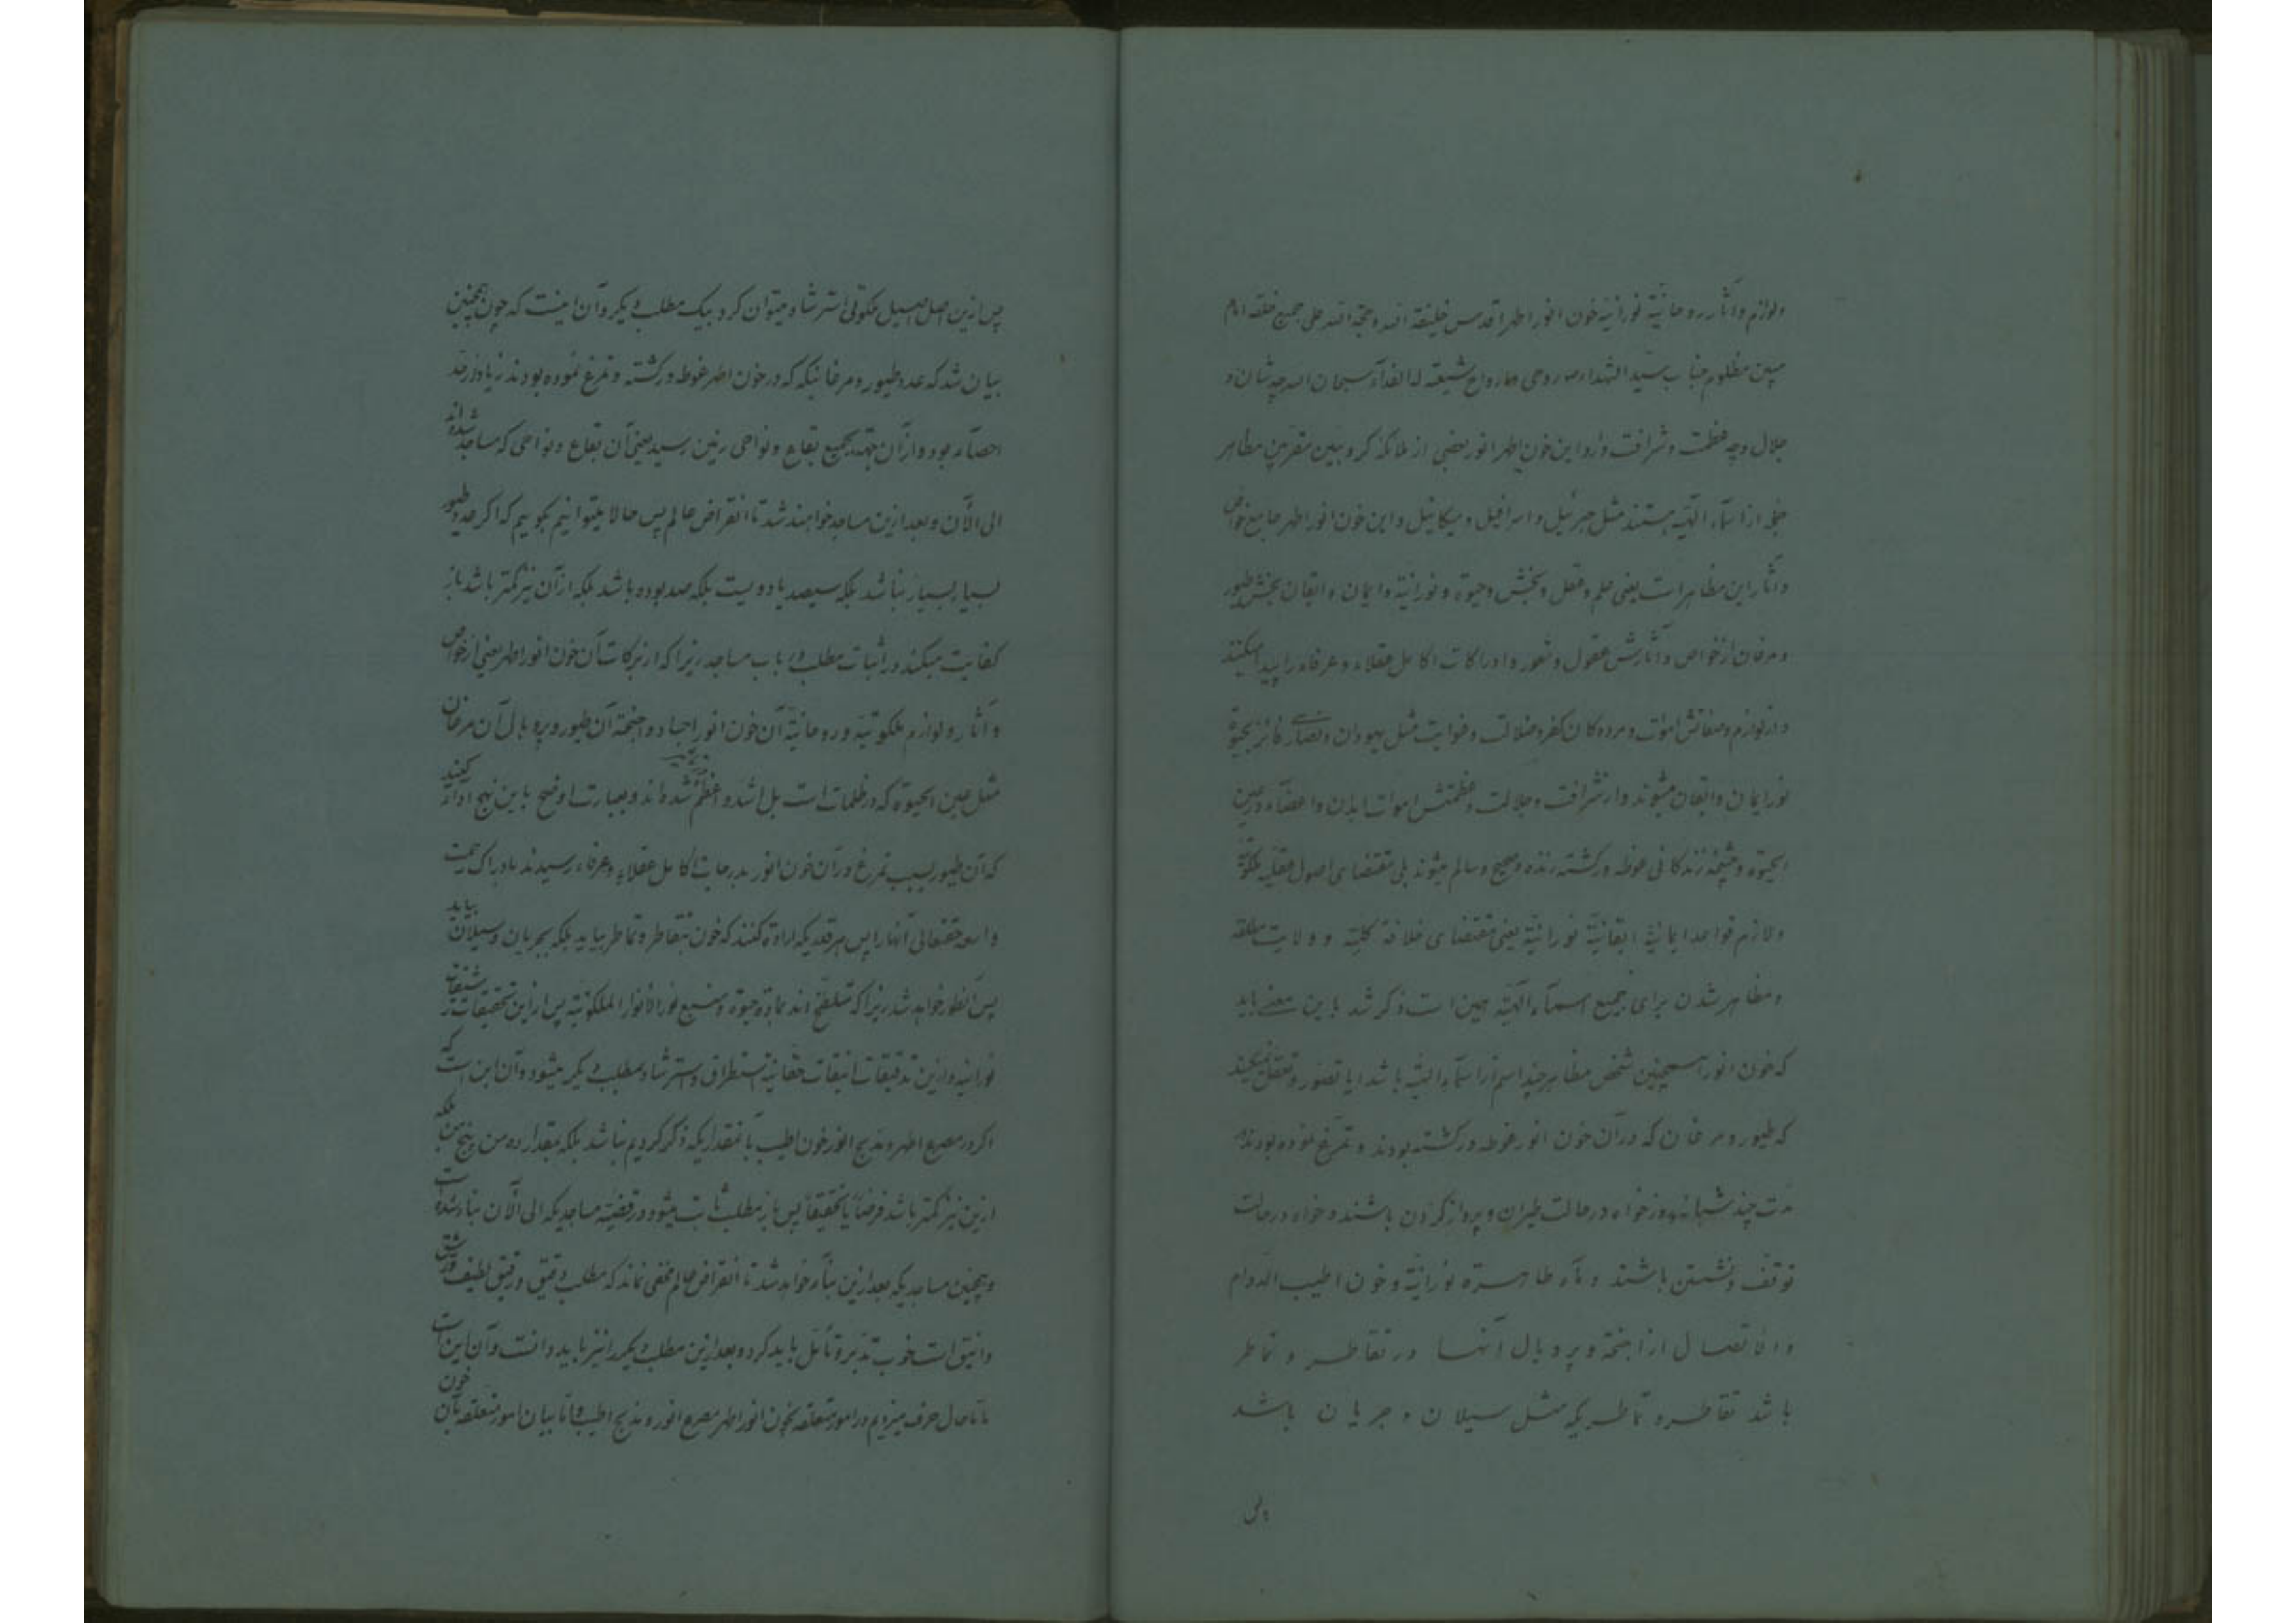 ولوازم و آثار روحانیة نورانیة خون انور اطهر اقدس خلیفة الله و حجة الله علی جمیع خلقه امام
مبین مظلوم جناب سید الشهداء روحی و ارواح شیعته له الفداء سبحان الله چه شان و
جلال و چه عظمت و شرافت دارد این خون اطهر انور بعضی از ملائکه کروبیین مقربین مظاهر
جمله از اسمآء الٓهیه هستند مثل جبرئیل و اسرافیل و میکائیل و این خون انور اطهر جامع خواص
و آثار این مظاهر است یعنی علم و عقل و بخش و حیوة و نورانیة و ایمان و ایقان بخش طیور
و مرغان از خواص و آثارش عقول و شعور و ادراکات اکامل عقلاء و عرفاء را پیدا میکنند
و از لوازم و صفاتش اموات و مرده کان کفر و ضلالت و غوایت مثل یهودان و نصاری فائز بحیوة
نور ایمان و ایقان میشوند و از شرافت و جلالت و عظمتش اموات ابدان و اعضآء در عین
الحیوة و چشمه زندکانی غوطه ور کشته زنده و صحیح و سالم میشوند بلی مقتضای اصول عقلیه ملکوتیة
ولازم قواعد ایمانیة ایقانیة نورانیة یعنی مقتضای خلافة کلیة و ولایت مطلقه
و مظاهر شدن برای جمیع اسمآء الٓهیة همین است ذکر شد باین معنی باید
که خون انور همچنین شخص مظاهر چند اسم از اسمآء الٓهیة باشد ایا تصور و تعقل نمیکنید
که طیور و مرغان که در آن خون انور غوطه ور کشته بودند و تمرغ نموده بودند در
مدت چند شبانه روز خواه در حالت طیران و پرواز کردن باشند و خواه در حالت
توقف و نشستن باشند و مآء طاهر نورانیة و خون اطیب الدوام
والاتصال از اجنحة و پر و بال آنها در تقاطر و تماطر
باشد تقاطر و تماطریکه مثل سیلان و جریان باشد
پس
پس ازین اصل اصیل ملکوتی استرشاد میتوان کرد بیک مطلب دیکر و آن اینست که چون همچنین
بیان شد که عدد طیور و مرغانیکه که در خون اطهر غوطه ور کشته و تمرغ نموده بودند زیاد از حد
احصآء بود و از آن جهة بجمیع بقاع و نواحی زمین رسید یعنی آن بقاع و نواحی که مساجد شده اند
الی الآن و بعد ازین مساجد خواهند شد تا انقراض عالم پس حالا میتوانیم بکوییم که اکر عدد طیور
بسیار بسیار نباشد بلکه سیصد یا دویست بلکه صد بوده باشد بلکه از آن نیز کمتر باشد باز
کفایت میکند در اثبات مطلب در باب مساجد زیرا که از برکات آن خون انور اطهر یعنی از خواص
و آثار و لوازم ملکوتیة و روحانیة آن خون انور اجساد و اجنحة آن طیور و پر و بال آن مرغان
مثل عین الحیوة که در ظلمات است بل اشد و اعظم شده اند و بعبارت اوضح باین نهج اداء کنید
که آن طیور بسبب تمرغ در آن خون انور بدرجات اکامل عقلاء و عرفاء رسیدند بادراک رحمت
واسعه حقتعالی آنها را پس هر قدر که اراده کنند که خون بتقاطر و تماطر بیاید بلکه بجریان و سیلان بیاید
پس آنطور خواهد شد زیرا که متلطخ اند بمادة حیوة و منبع نور الأنوار الملکوتیة پس ازین تحقیقات رشیقات
نورانیة و ازین تدقیقات انیقات حقانیة استطراق و استرشاد بمطلب دیکر میشود و آن این است که
اکر در مصرع اطهر و مذبح انور خون اطیب بآنمقداریکه ذکر کردیم نباشد بلکه بمقدار ده من پنج من بلکه
ازین نیز کمتر باشد فرضاً یا تحقیقاً پس باز مطلب ثابت میشود در قضیة مساجدیکه الی الآن بناء شده است
و همچنین مساجدیکه بعد ازین بنآء خواهد شد تا انقراض عالم مخفی نماند که مطلب دقیق و رقیق لطیف و رشیق
و انیق است خوب تدبر و تأمل باید کرد و بعد ازین مطلب دیکر را نیز باید دانست و آن این است
ما تا حال حرف میزدیم در امور متعلقه بخون انور اطهر مصرع انور و مذبح اطیب و اما بیان امور متعلقه بآن خون